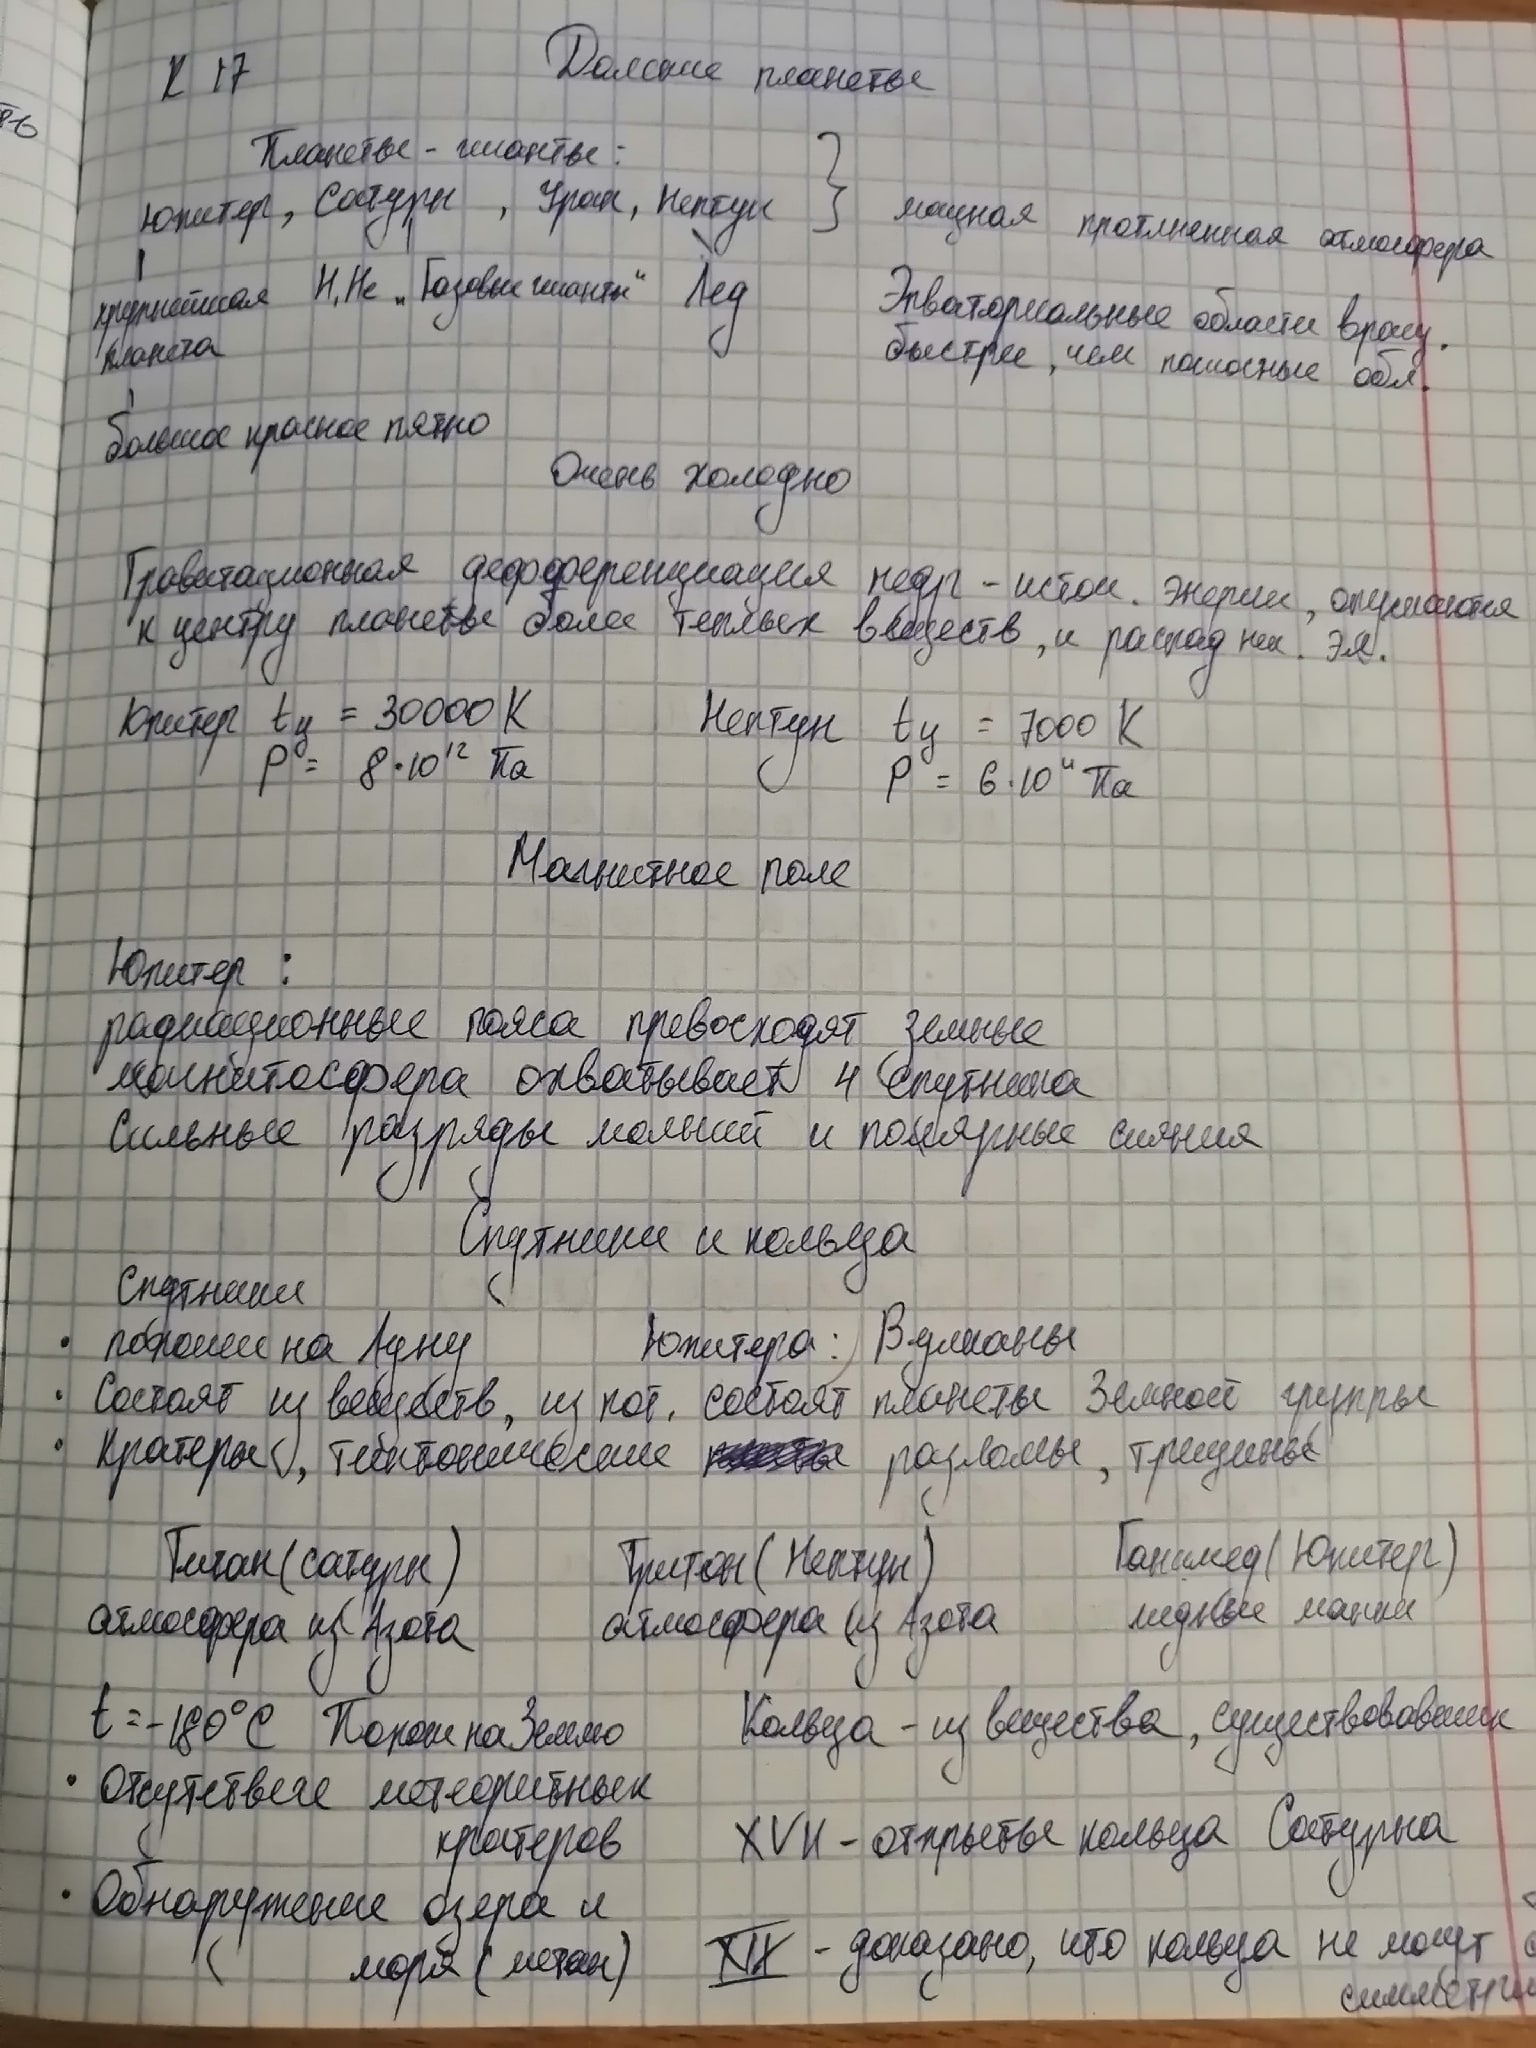 К 17 Далекие планеты
Планеты - гиганты:
Юпитер, Сатурн, Уран, Нептун } мощная протяженная атмосфера
крупнейшая планета
H, He „Газовые гиганты" Лед
Экваториальные области вращ.
быстрее, чем полюсные обл.
большое красное пятно
Очень холодно
Гравитационная дифференциация недр - источ. энергии, опускаются
к центру планеты более теплых веществ, и распад нек. эл.
Юпитер tц = 30000 К Нептун tц = 7000 К
P = 8·10¹² Па P = 6·10¹¹ Па
Магнитное поле
Юпитер:
радиационные пояса превосходят земные
магнитосфера охватывает 4 спутника
Сильные разряды молний и полярные сияния
Спутники и кольца
Спутники
• похожи на Луну Юпитера: Вулканы
• Состоят из веществ, из кот. состоят планеты Земной группы
• Кратеры, тектонические разломы, трещины
Титан (сатурн) Тритон (Нептун) Ганимед (Юпитер)
атмосфера из Азота атмосфера из Азота ледные
t = -180°C Похож на Землю
• Отсутствие метеоритных
кратеров
• Обнаружение озера и
моря (метан)
Кольца - из вещества, существовавших
XVII - открыты кольца Сатурна
XIX - доказано, что кольца не могут